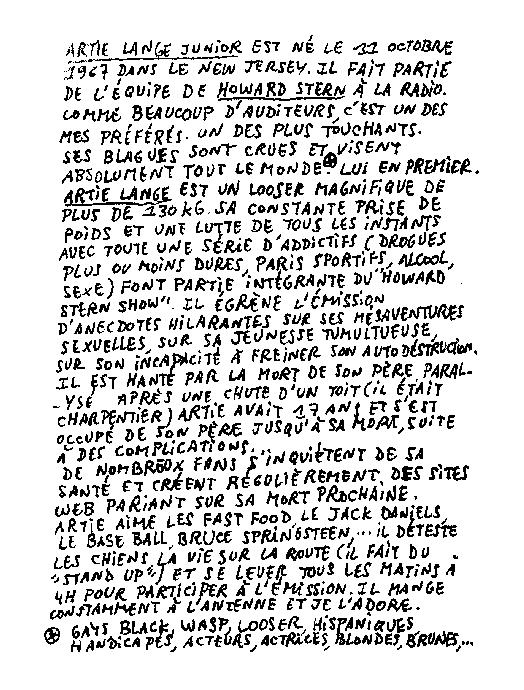 ARTIE LANGE JUNIOR EST NÉ LE 11 OCTOBRE
1967 DANS LE NEW JERSEY. IL FAIT PARTIE
DE L'ÉQUIPE DE HOWARD STERN À LA RADIO.
COMME BEAUCOUP D'AUDITEURS, C'EST UN DES
MES PRÉFÉRÉS. UN DES PLUS TOUCHANTS.
SES BLAGUES SONT CRUES ET VISENT
ABSOLUMENT TOUT LE MONDE⊛. LUI EN PREMIER.
ARTIE LANGE EST UN LOOSER MAGNIFIQUE DE
PLUS DE 130 KG. SA CONSTANTE PRISE DE
POIDS ET UNE LUTTE DE TOUS LES INSTANTS
AVEC TOUTE UNE SÉRIE D'ADDICTIFS (DROGUES
PLUS OU MOINS DURES, PARIS SPORTIFS, ALCOOL,
SEXE) FONT PARTIE INTÉGRANTE DU "HOWARD
STERN SHOW". IL ÉGRÈNE L'ÉMISSION
D'ANECDOTES HILARANTES SUR SES MÉSAVENTURES
SEXUELLES, SUR SA JEUNESSE TUMULTUEUSE,
SUR SON INCAPACITÉ À FREINER SON AUTODÉSTRUCTION.
IL EST HANTÉ PAR LA MORT DE SON PÈRE PARAL-
-YSÉ APRÈS UNE CHUTE D'UN TOIT (IL ÉTAIT
CHARPENTIER) ARTIE AVAIT 17 ANS ET S'EST
OCCUPÉ DE SON PÈRE JUSQU'À SA MORT, SUITE
À DES COMPLICATIONS.
DE NOMBREUX FANS S'INQUIÈTENT DE SA
SANTÉ ET CRÉENT RÉGULIÈREMENT DES SITES
WEB PARIANT SUR SA MORT PROCHAINE.
ARTIE AIME LES FAST FOOD, LE JACK DANIELS,
LE BASE BALL, BRUCE SPRINGSTEEN,... IL DÉTESTE
LES CHIENS, LA VIE SUR LA ROUTE (IL FAIT DU
"STAND UP") ET SE LEVER TOUS LES MATINS À
4H POUR PARTICIPER À L'ÉMISSION. IL MANGE
CONSTAMMENT À L'ANTENNE ET JE L'ADORE.
⊛ GAYS, BLACK, WASP, LOOSER, HISPANIQUES
HANDICAPÉS, ACTEURS, ACTRICES, BLONDES, BRUNES,...